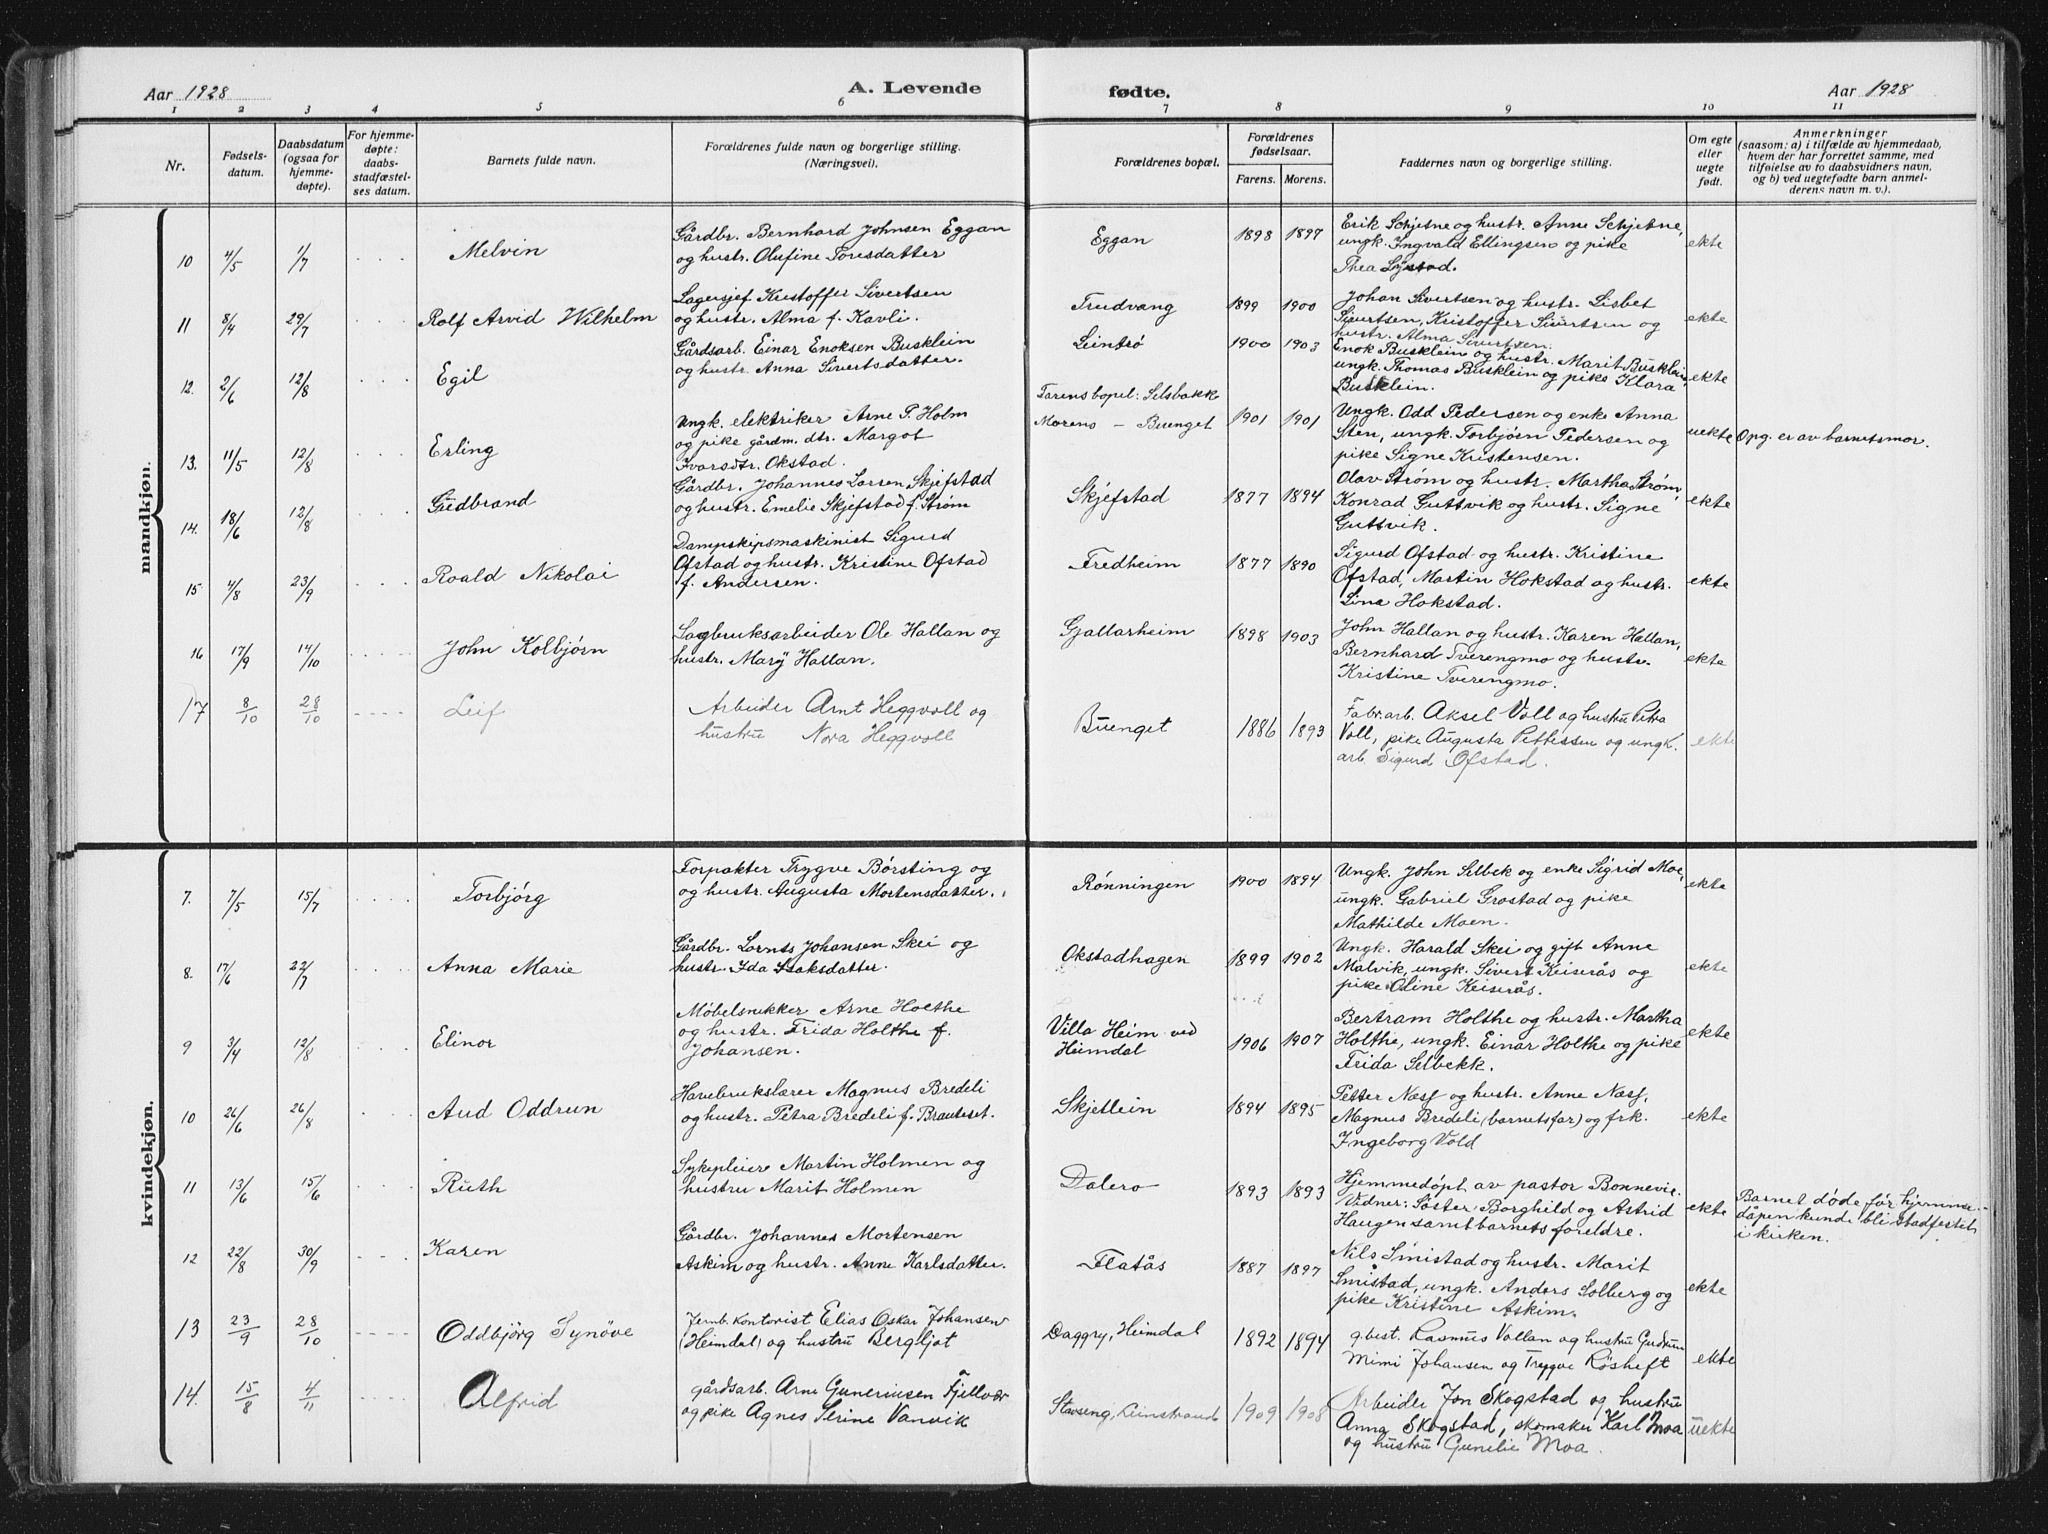 Aar 1928
A. Levende
fødte.
Aar 1928
1 2 3 4 5 6 7 8 9 10 11
Nr.
Fødsels-
datum.
Daabsdatum
(ogsaa for
hjemme-
døpte).
For hjemme-
døpte:
daabs-
stadfæstel-
ses datum.
Barnets fulde navn.
Forældrenes fulde navn og borgerlige stilling.
(Næringsvei).
Forældrenes bopæl.
Forældrenes
fødselsaar.
Farens. Morens.
Faddernes navn og borgerlige stilling.
Om egte
eller
uegte
født.
Anmerkninger
(saasom: a) i tilfælde av hjemmedaab,
hvem der har forrettet samme, med
tilføielse av to daabsvidners navn,
og b) ved uegtefødte barn anmel-
derens navn m. v.).
mandkjøn.
10 4/5 1/7 Melvin
Gårdbr. Bernhard Johnsen Eggan
og hustr. Olufine Toresdatter
Eggan 1898 1897
Erik Schjetne og hustr. Anne Schjetne,
ungk. Ingvald Ellingsen og pike
Thea Lystad.
ekte
11 8/4 29/7 Rolf Arvid Wilhelm
Lagersjef Kristoffer Sivertsen
og hustr. Alma f. Kavli.
Trudvang 1899 1900
Johan Sivertsen og hustr. Lisbet
Sivertsen, Kristoffer Sivertsen og
hustr. Alma Sivertsen.
ekte
12. 2/6 12/8 Egil
Gårdsarb. Einar Enoksen Busklein
og hustr. Anna Sivertsdatter.
Leintrø 1900 1903
Enok Busklein og hustr. Marit Busklein,
ungk. Thomas Busklein og pike Klara
Busklein.
ekte
13. 11/5 12/8 Erling
Ungk. elektriker Arne P. Holm
og pike gårdm. dtr. Margot
Ivarsdtr. Okstad.
Farens bopel: Selsbakk
Morens — Buenget 1901 1901
Ungk. Odd Pedersen og enke Anna
Sten, ungk. Torbjørn Pedersen og
pike Signe Kristensen.
uekte Opg. er av barnets mor.
14. 18/6 12/8 Gudbrand
Gårdbr. Johannes Larsen Skjefstad
og hustr. Emelie Skjefstad f. Strøm
Skjefstad 1877 1894
Olav Strøm og hustr. Martha Strøm,
Konrad Guttvik og hustr. Signe
Guttvik.
ekte
15 4/8 23/9 Roald Nikolai
Dampskipsmaskinist Sigurd
Ofstad og hustr. Kristine Ofstad
f. Andersen.
Fredheim 1877 1890
Sigurd Ofstad og hustr. Kristine
Ofstad, Martin Hokstad og hustr.
Lina Hokstad.
ekte
16 17/9 14/10 John Kolbjørn
Sagbruksarbeider Ole Hallan og
hustr. Mary Hallan.
Gjallarheim 1898 1903
John Hallan og hustr. Karen Hallan,
Bernhard Tverengmo og hustr.
Kristine Tverengmo.
ekte
17 8/10 28/10 Leif
Arbeider Arnt Heggvoll og
hustru Nora Heggvoll
Buenget 1886 1893
Fabr.arb. Aksel Voll og hustru Petra
Voll, pike Augusta Pettersen og ungk.
arb. Sigurd Ofstad.
ekte
kvindekjøn.
7. 7/5 15/7 Torbjørg
Forpakter Trygve Børsting og
og hustr. Augusta Mortensdatter.
Rønningen 1900 1894
Ungk. John Selbek og enke Sigrid Moe,
ungk. Gabriel Grostad og pike
Mathilde Moen.
ekte
8. 17/6 22/7 Anna Marie
Gårdbr. Lornts Johansen Skei og
hustr. Ida Isaksdatter.
Okstadhagen 1899 1902
Ungk. Harald Skei og gift Anne
Malvik, ungk. Sivert Keiserås og
pike Oline Keiserås.
ekte
9 3/4 12/8 Elinor
Møbelsnekker Arne Holthe
og hustr. Frida Holthe f.
Johansen.
Villa Heim ved
Heimdal 1906 1907
Bertram Holthe og hustr. Martha
Holthe, ungk. Einar Holthe og pike
Frida Selbekk.
ekte
10 26/6 26/8 Aud Oddrun
Havebrukslærer Magnus Bredeli
og hustr. Petra Bredeli f. Brauteset.
Skjetlein 1894 1895
Petter Næss og hustr. Anne Næss,
Magnus Bredeli (barnets far) og frk.
Ingeborg Vold
ekte
11 13/6 15/6 Ruth
Sykepleier Martin Holmen og
hustru Marit Holmen
Dalero 1893 1893
Hjemmedøpt av pastor Bonnevie.
Vidner: Søster Borghild og Astrid
Haugen samt barnets foreldre.
ekte
Barnet døde før hjemme-
dåpen kunde bli stadfestet
i kirken.
12 22/8 30/9 Karen
Gårdbr. Johannes Mortensen
Askim og hustr. Anne Karlsdatter.
Flatås 1887 1897
Nils Smistad og hustr. Marit
Smistad, ungk. Anders Solberg og
pike Kristine Askim.
ekte
13 23/9 28/10 Oddbjörg Synöve
Jernb. kontorist Elias Oskar Johansen
(Heimdal) og hustru Bergljot
Daggry, Heimdal 1892 1894
g.best. Rasmus Vollan og hustru Gudrun
Mimi Johansen og Trygve Rösheft
ekte
14. 15/8 4/11 Alfrid
gårdsarb. Arne Guneriusen Fjellvær
og pike Agnes Serine Vanvik
Stavseng, Leinstrand 1909 1908
Arbeider Jon Skogstad og hustru
Anna Skogstad, skomaker Karl Moa
og hustru Gunelie Moa.
uekte